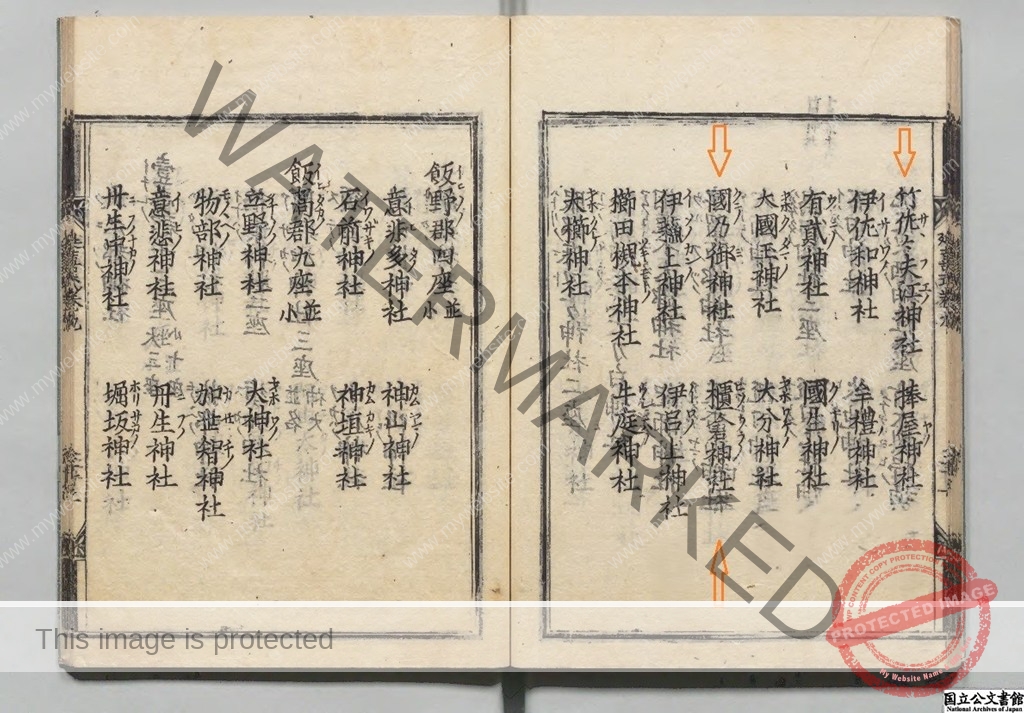 竹佐々夫江神社　捧屋神社
伊佐和神社　牟禮神社
有貳神社二座　國生神社
大國玉神社　大分神社
國乃御神社　櫃倉神社
伊蘇上神社　伊呂上神社
櫛田槻本神社　牛庭神社
大櫛神社
飯野郡四座並小
意非多神社　神山神社
石前神社　神垣神社
飯高郡九座並小
立野神社　大神社
物部神社　加世智神社
意悲神社　丹生神社
丹生中神社　堀坂神社
WATERMARKED
This image is protected
PROTECTED IMAGE
MY CONTENT COPY PROTECTION
My Website Name
www.mywebsite.com
国立公文書館
National Archives of Japan